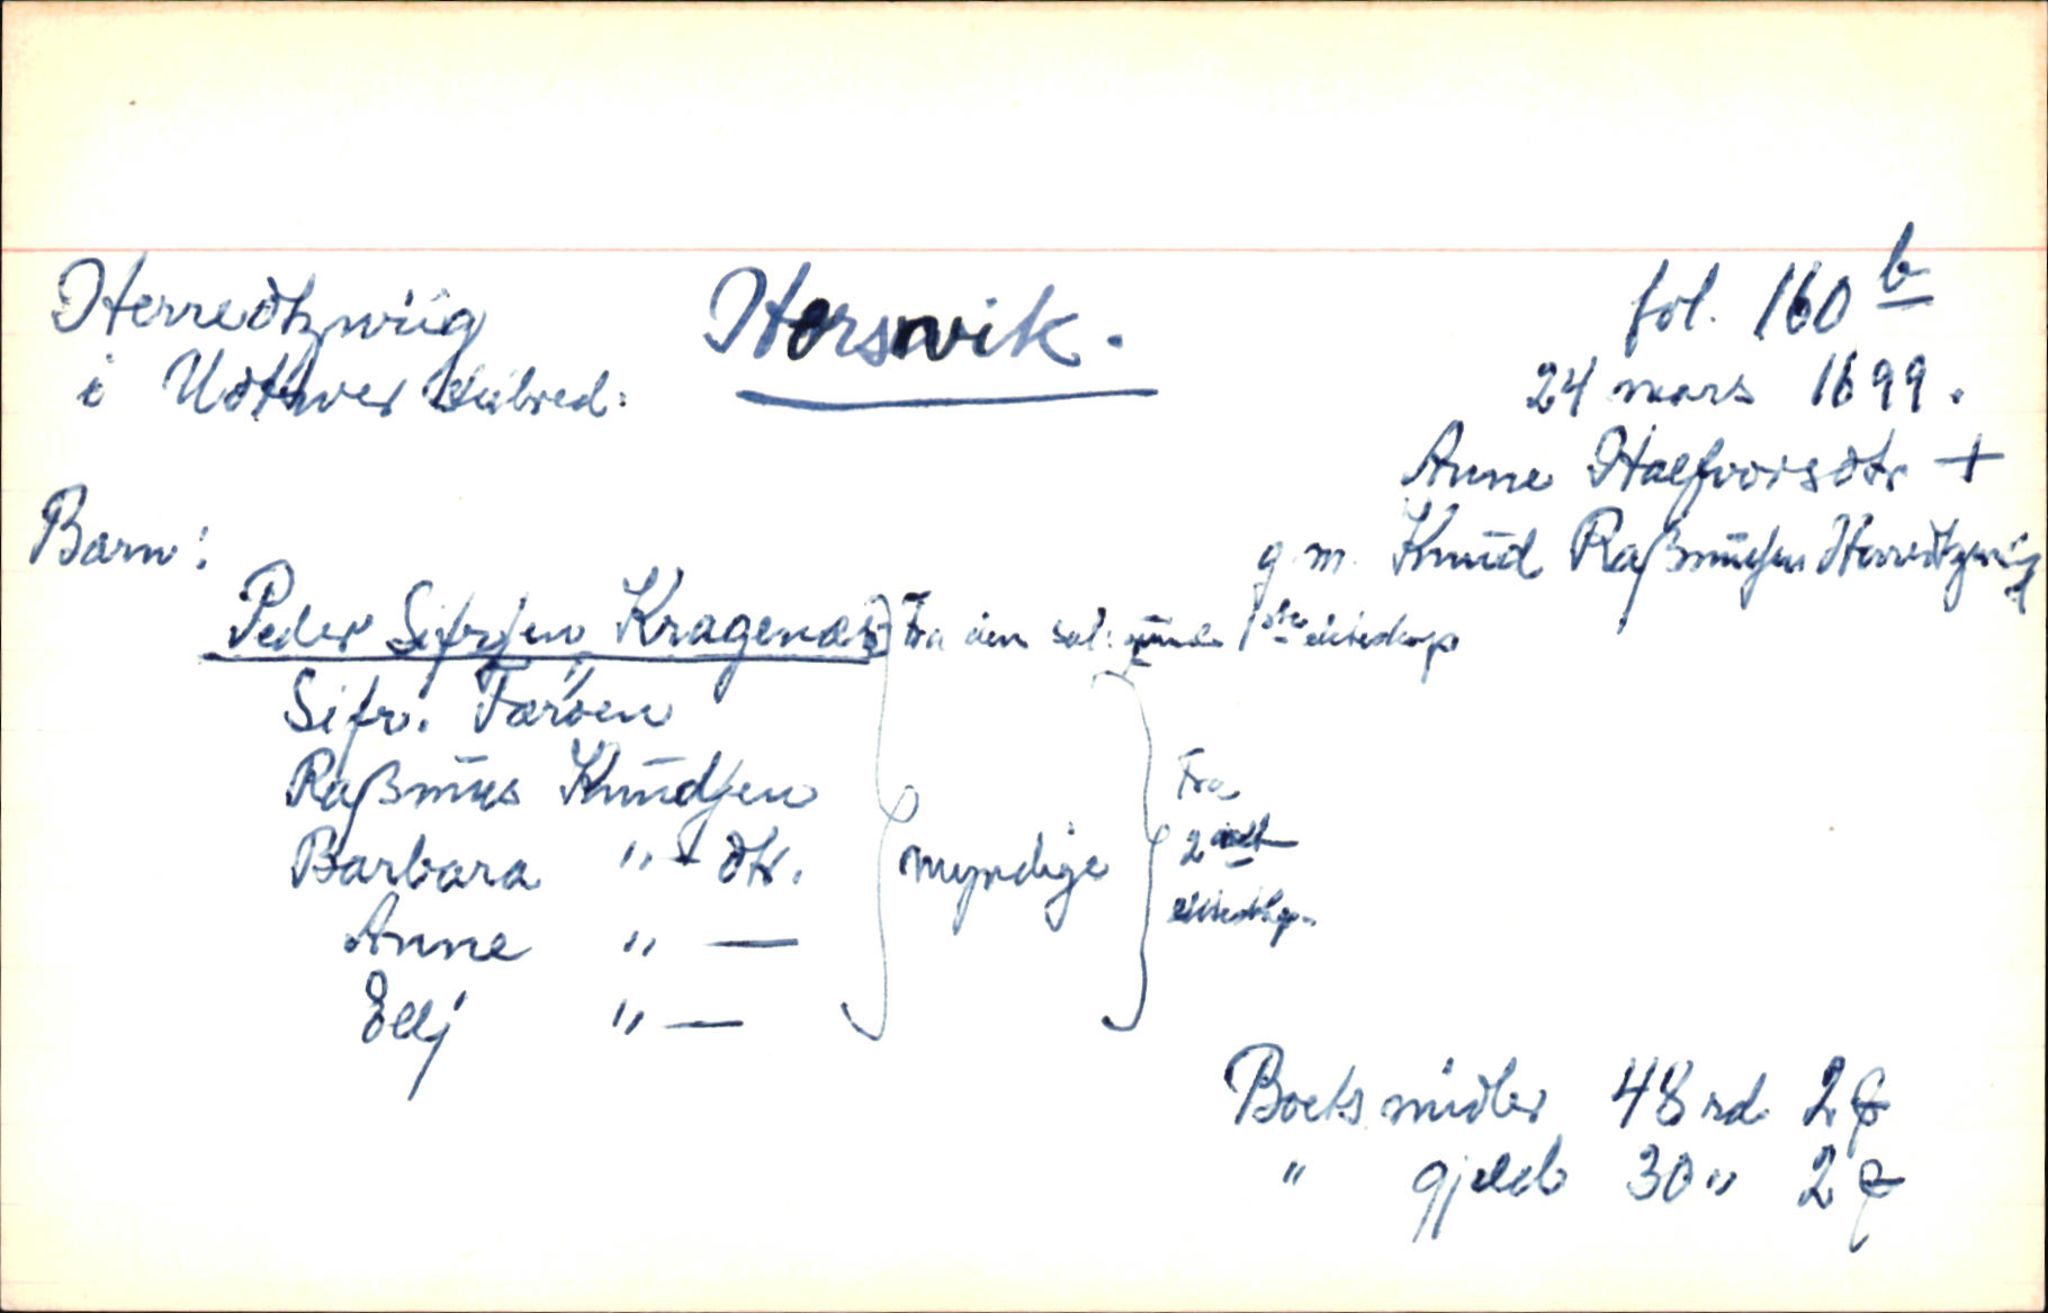 Herredtzwiig
i Udtwer
Horsvik.
fol. 160 b
24 mars 1699.
Anne Halfvorsdtr +
g. m. Knud Raßmusen Herredtzwiig
Barn:
Peder Sifrsen Kragenæs Fra den sal. 1ste ekteskap
Sifr. Tarven
Raßmus Knudsen
Barbara " - dtr.
Anne " —
Ellj " —
myndige
Fra
2det
ekteskap.
Boets midler 48 rd. 2 ß
" gjeld 30 " 2 ß